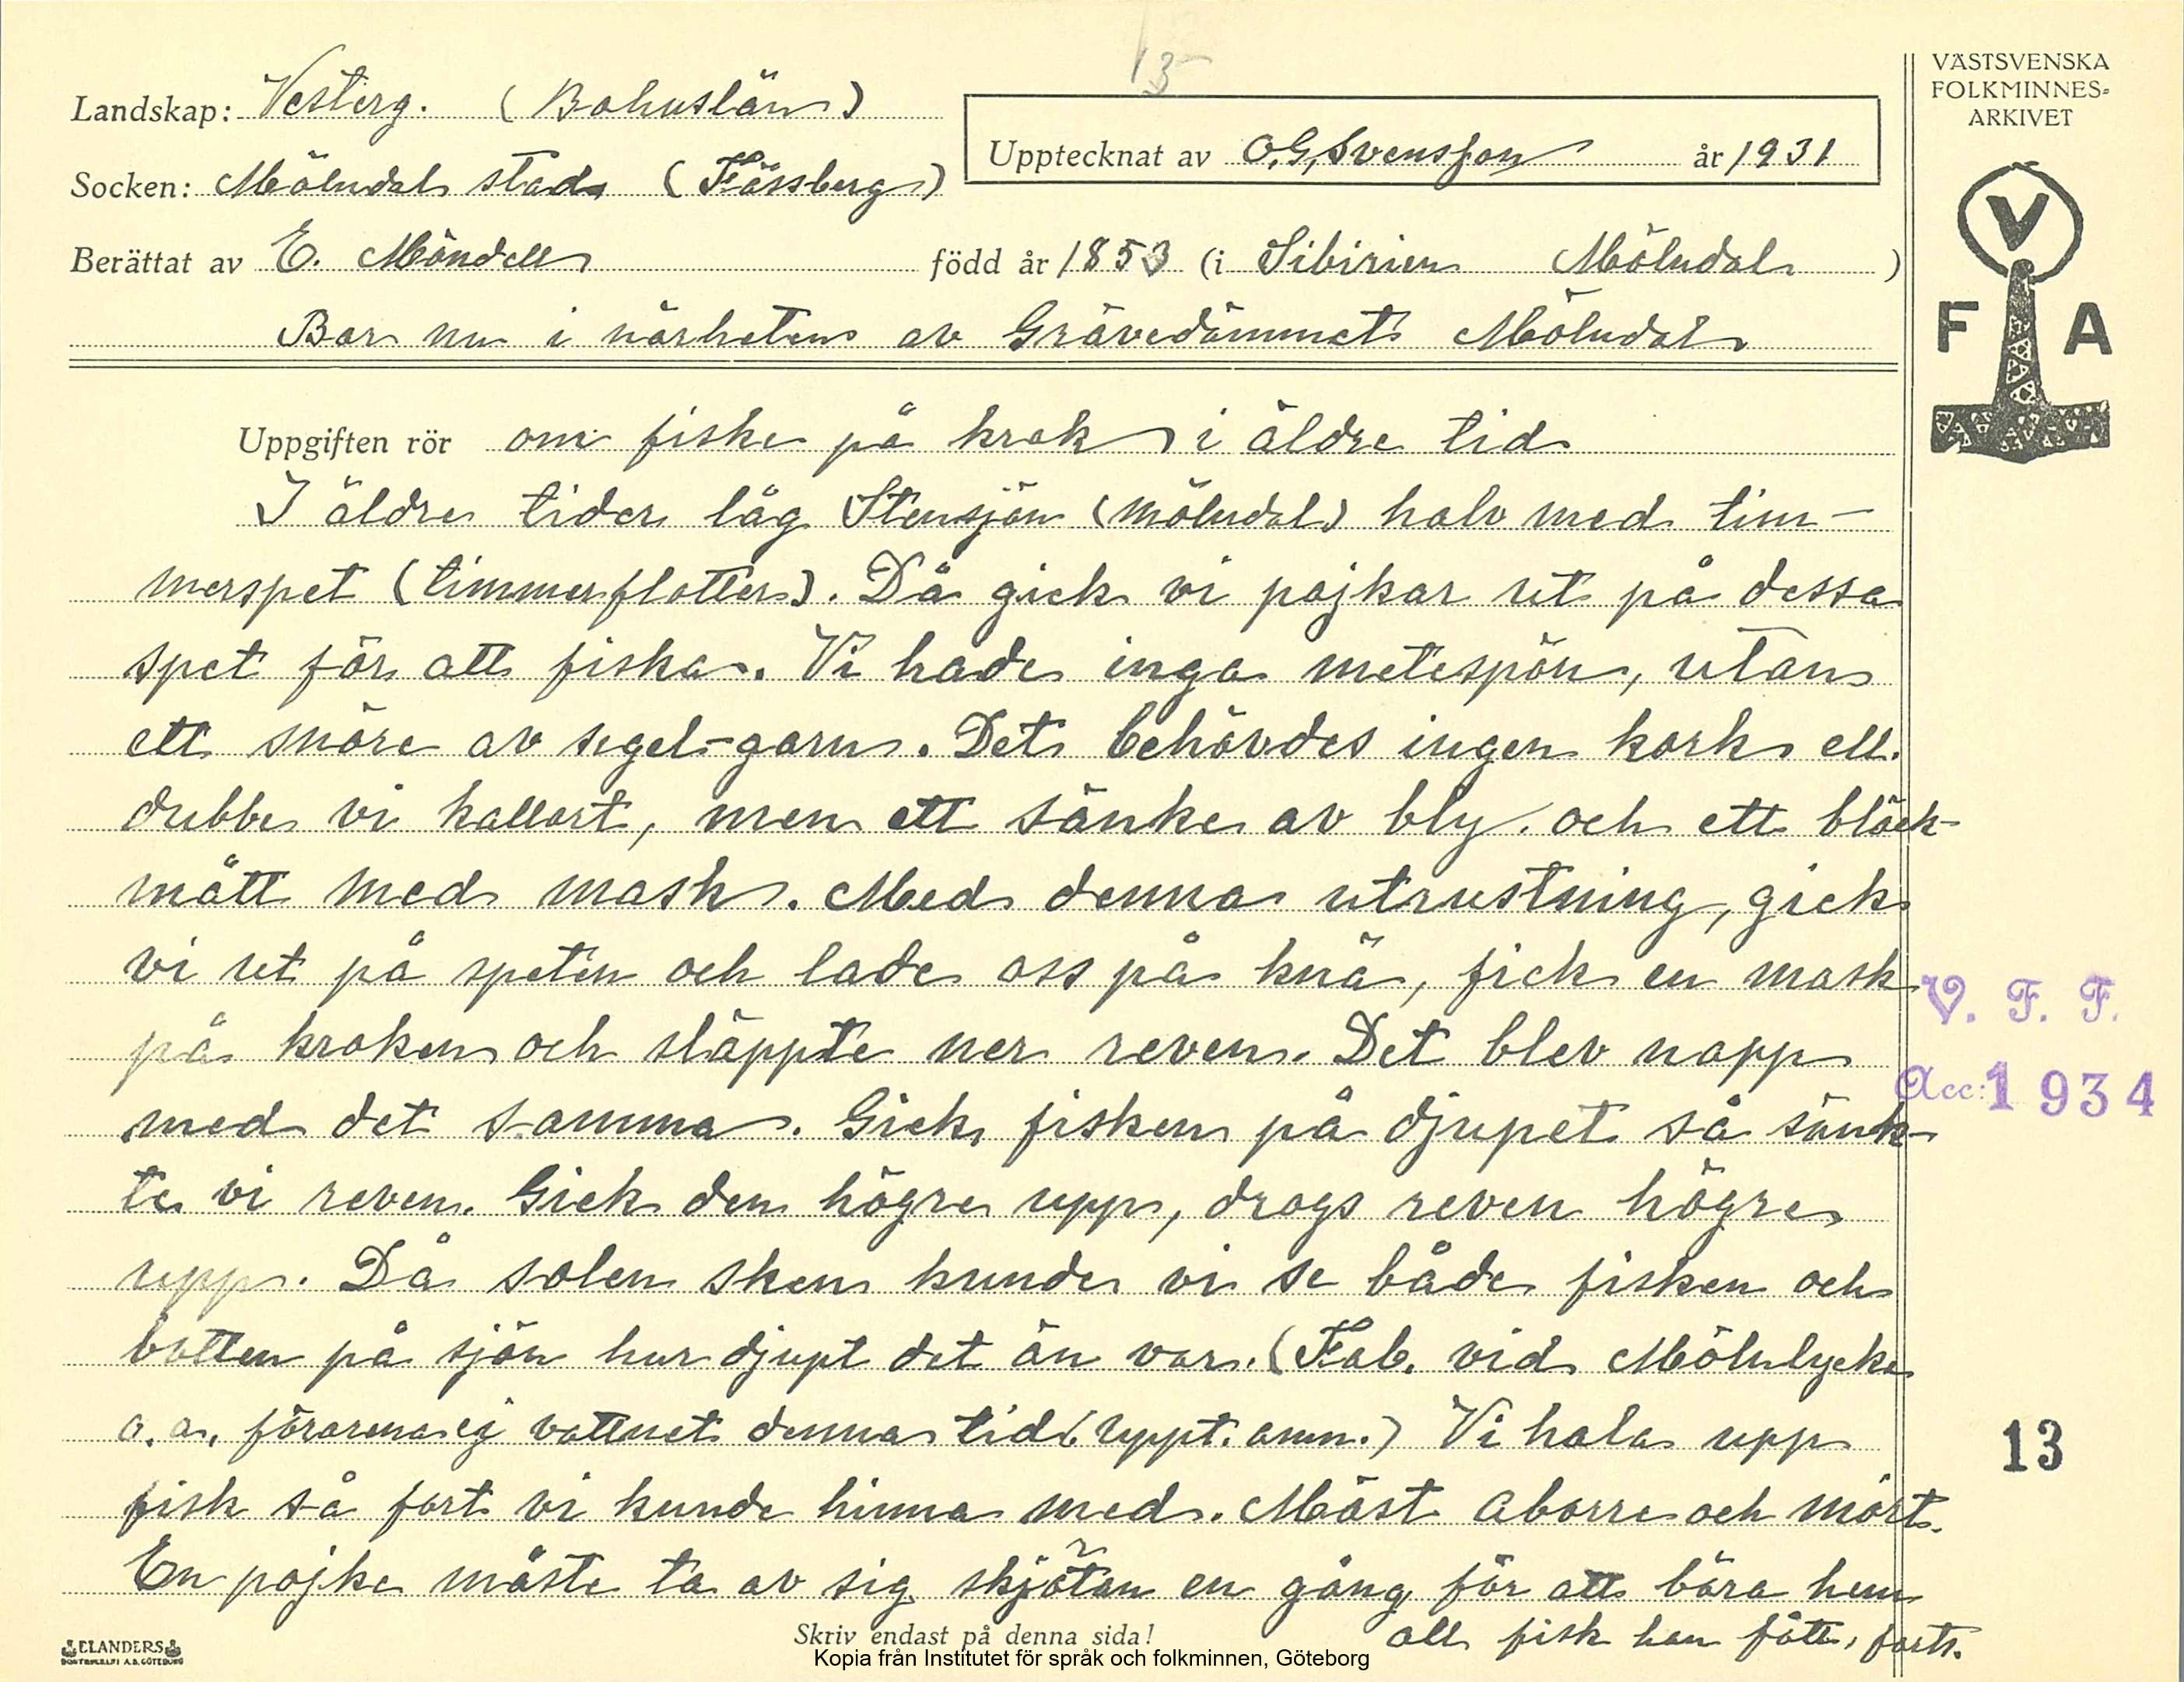 13
VÄSTSVENSKA
FOLKMINNES-
ARKIVET
Landskap: Vesterg. (Bohuslän)
Upptecknat av O,G,Svensson år 1931
Socken: Mölndals stad (Fässberg)
Berättat av E. Möndell född år 1853 (i Sibirien Mölndal )
Bor nu i närheten av Grävedämmet Mölndal
V
F A
Uppgiften rör om fiske på krok i äldre tid
I äldre tider låg Stensjön (Mölndal) halv med tim-
merspet (timmerflottar). Då gick vi pojkar ut på dessa
spet för att fiska. Vi hade inga metespön, utan
ett snöre av segel-garn. Det behövdes ingen kork ell.
dubbe vi kallart, men ett sänke av bly och ett bläck-
mått med mask. Med denna utrustning, gick
vi ut på speten och lade oss på knä, fick en mask
på kroken och släppte ner reven. Det blev napp
med det samma. Gick fisken på djupet så sänk-
te vi reven. Gick den högre upp, drogs reven högre
upp. Då solen sken kunde vi se både fisken och
botten på sjön hur djupt det än var. (Fab. vid Mölnlycke
o. a. förorena ej vattnet denna tid (uppt. anm.) Vi hala upp
fisk så fort vi kunde hinna med. Mäst aborre och mört.
En pojke måste ta av sig skjötan en gång för att bära hem
all fisk han fått, forts.
V. F. F.
Acc: 1934
13
ELANDERS
BOKTRYCKERI A.B. GÖTEBORG
Skriv endast på denna sida!
Kopia från Institutet för språk och folkminnen, Göteborg